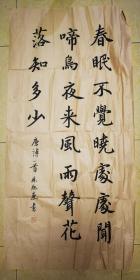 春眠不覺曉處處聞
啼鳥夜来風雨聲花
落知多少
唐诗一首